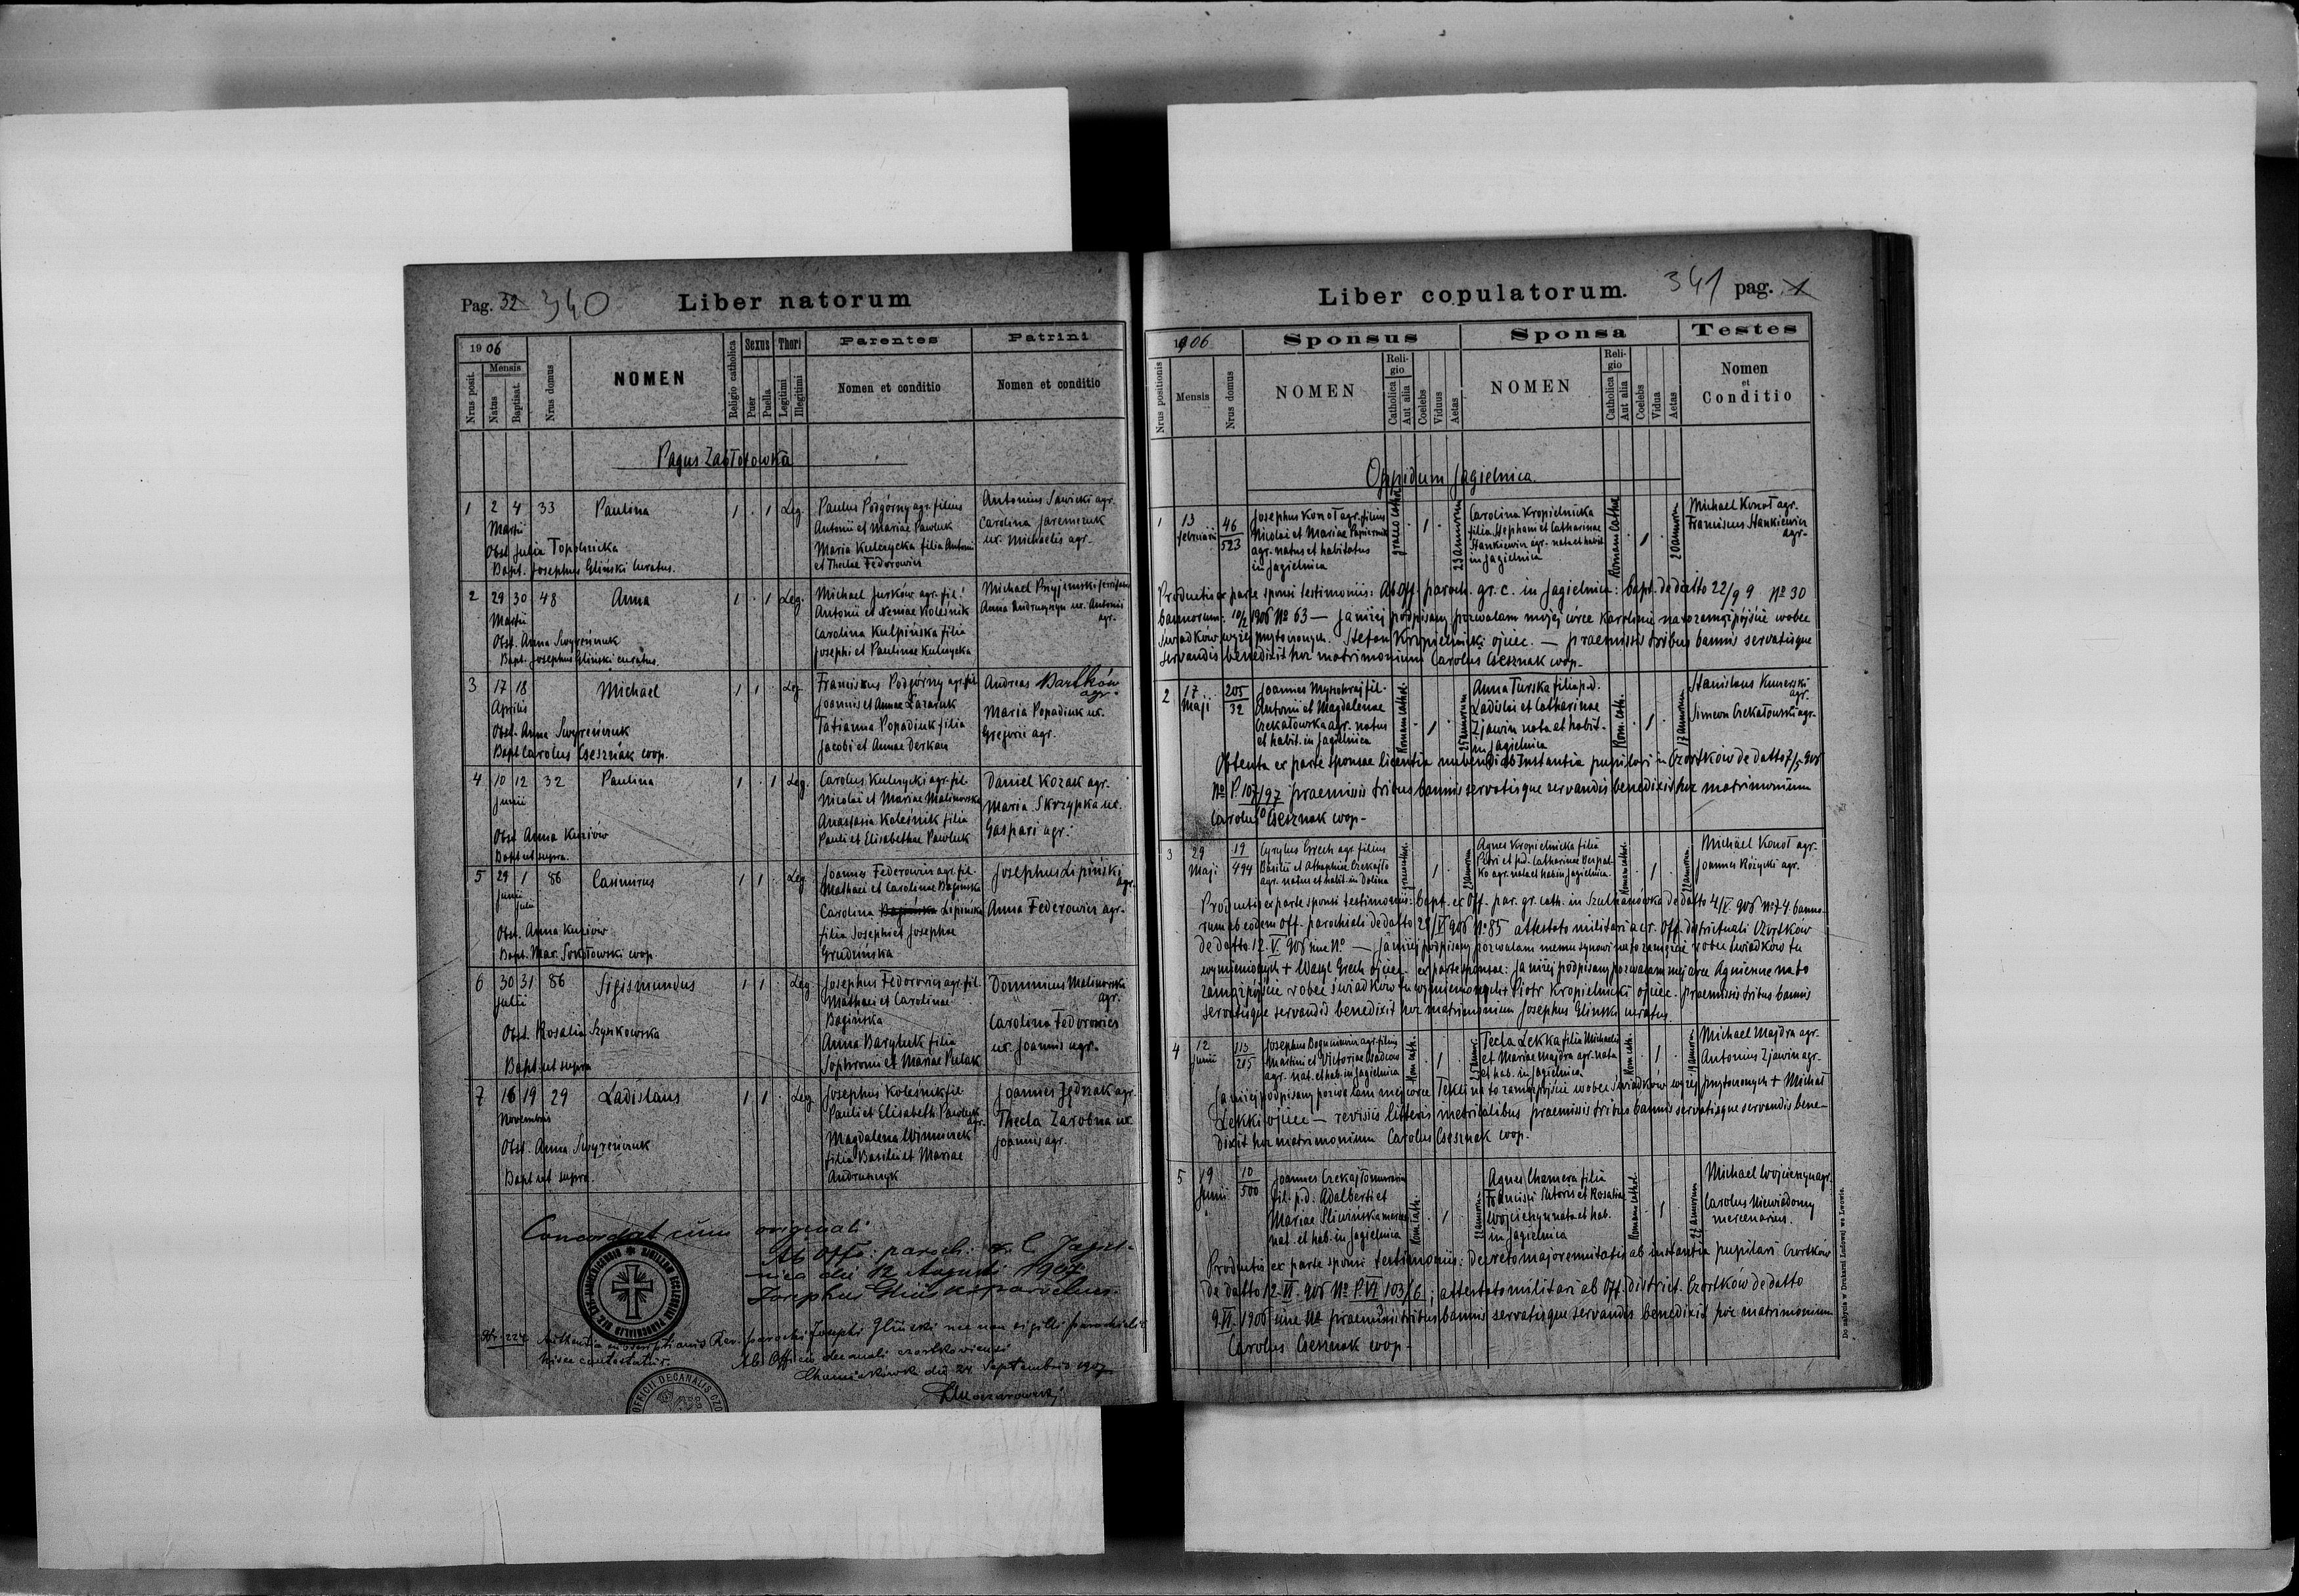 Pag. 32 340 Liber natorum
1906
Mensis
Nrus posit.
Natus
Baptisat.
Nrus domus
NOMEN
Religio catholica
Sexus
Puer
Puella
Thori
Legitimi
Illegitimi
Parentes
Nomen et conditio
Patrini
Nomen et conditio
Pagus Zabłotówka
1 2 4 33 Paulina 1 . 1 Leg.
Martii
Obst. Julia Topolnicka
Bapt. Josephus Gliński curatus.
Paulus Podgórny agr. filius
Antonii et Mariae Pawluk
Maria Kulczycka filia Antonii
et Theclae Fedorowicz
Antonius Sawicki agr.
Carolina Jaremczuk
ux. Michaelis agr.
2 29 30 48 Anna 1 . 1 Leg.
Martii
Obst. Anna Swyreńczuk
Bapt. Josephus Gliński curatus.
Michael Jurków agr. fil.
Antonii et Xeniae Koleśnik
Carolina Kulpińska filia
Josephi et Paulinae Kulczycka
Anna Andruszczyn ux. Antonii
agr.
3 17 18 Michael 1 1 . Leg.
Aprilis
Obst. Anna Swyreńczuk
Bapt Carolus Csesznak coop.
Franciscus Podgórny agr. fil.
Joannis et Annae Łazaruk
Tatianna Popadiuk filia
Jacobi et Annae Derkacz
Andreas Bartków
agr.
Maria Popadiuk ux.
Gregorii agr.
4 10 12 32 Paulina 1 . 1 Leg.
Junii
Obst. Anna Kuziów
Bapt ut supra.
Carolus Kulczycki agr. fil.
Nicolai et Mariae Malinowska
Anastasia Koleśnik filia
Pauli et Elisabethae Pawluk
Daniel Kozak agr.
Maria Skrzypka ux.
Gaspari agr.
5 29 1 86 Casimirus 1 1 . Leg.
Junii
Julii
Obst. Anna Kuziów
Bapt. Mar. Sokołowski coop.
Joannes Federowicz agr. fil.
Mathaei et Carolinae Bagińska
Carolina Lipińska
filia Josephi et Josephae
Grudzińska
Josephus Lipiński
agr.
Anna Federowicz agr.
6 30 31 86 Sigismundus 1 1 . Leg
Julii
Obst. Rosalia Szynkowska
Bapt. ut supra
Josephus Fedorowicz agr. fil.
Mathaei et Carolinae
Bagińska
Anna Baryluk filia
Sophronii et Mariae Pulak
Dominicus Malinowski
agr.
Carolina Fedorowicz
ux. Joannis agr.
7 16 19 29 Ladislaus 1 1 . Leg
Novembris
Obst. Anna Swyreńczuk
Bapt ut supra.
Josephus Koleśnik fil.
Pauli et Elisabeth. Pawluk
agr.
Magdalena Winniczek
filia Basilii et Mariae
Andruszczyk
Joannes Jędrzak agr.
Thecla Zarobna ux.
Joannis agr.
Concordat cum originali
Ab Offo: paroch: r. l. Jagiel-
nica die 12 Augusti 1907.
Josephus Gliński parochus.
Rev. parochi Josephi Gliński nec non sigilli parochialis
hisce contestatur.
Ab Officio decanali czortkoviensi
die 24 Septembris 1907
OFFICII DECANALIS CZO
Liber copulatorum. 341 pag. 1
1906
Nrus positionis
Mensis
Nrus domus
Sponsus
NOMEN
Religio
Catholica
Aut alia
Coelebs
Viduus
Aetas
Sponsa
NOMEN
Religio
Catholica
Aut alia
Coelebs
Vidua
Aetas
Testes
Nomen
et
Conditio
Oppidum Jagielnica.
1 13 46
februarii 523
Josephus Konot agr. filius
Nicolai et Mariae Papiernik
agr. natus et habitatus
in Jagielnica
graeco cathol.
23 annorum
Carolina Kropielnicka
filia Stephani et Catharinae
Hankiewicz agr. nata et habit.
in Jagielnica
Romano cathol.
20 annorum
Michael Konot agr.
Franciscus Hankiewicz
agr.
Productis ex parte sponsi testimoniis: Ab Off. paroch. gr. c. in Jagielnica: bapt. de datto 22/9 9 No 30
bannorum: 10/2 1906 No 63 — Ja niżej podpisany pozwalam mojej córce Karolinie na to zamążpójście wobec
świadków wyżej przytoczonych. Stefan Kropielnicki ojciec. — praemissis tribus bannis servatisque
servandis benedixit hoc matrimonium Carolus Csesznak coop.
2 17 205
Maji 32
Antonii et Magdalenae
Czekałowska agr. natus
et habit. in Jagielnica
Romano cathol.
25 annorum
Anna Turska filia p.d.
Ladislai et Catharinae
Zjawin nata et habit.
in Jagielnica
Rom. cath.
17 annorum
Stanislaus Kunerski
agr.
Simeon Czekałowski agr.
Obtenta ex parte sponsae licentia nubendi ab Instantia pupilari in Czortków de datto 7/5 906
No P. 107/97 praemissis tribus bannis servatisque servandis benedixit hoc matrimonium
Carolus Csesznak coop.
3 29 19
Maji 494
Cyrylus Grech agr. filius
agr. natus et habit. in Dolina
23 annorum
Agnes Kropielnicka filia
Petri et p.d. Catharinae Despot-
ko agr. nata et hab. in Jagielnica.
22 annorum
Michael Konot agr.
Joannes Różycki agr.
Productis ex parte sponsi testimoniis: bapt. ex Off. par. gr. cath. in Szulhanówka de datto 4/V. 906 No 74. banno-
rum ab eodem off. parochiali de datto 28/V 906 No 85 attestato militari a c. r. Off. districtuali Czortków
de datto 12. V. 906 sine No — Ja niżej podpisany pozwalam memu synowi na to zamężcie wobec świadków tu
wymienionych + Wasyl Grech ojciec. ex parte sponsae: Ja niżej podpisany pozwalam mej córce Agnieszce na to
zamążpójście wobec świadków tu wymienionych + Piotr Kropielnicki ojciec. praemissis tribus bannis
servatisque servandis benedixit hoc matrimonium Josephus Gliński curatus.
4 12 113
Junii 285
agr. filius
Martini et Victoriae
agr. nat. et hab. in Jagielnica
Rom. cath.
25 annor.
Tecla Lekka filia Michaelis
et Mariae Majdra agr. nata
et hab. in Jagielnica
Rom. cath.
19 annorum
Michael Majdra agr.
Antonius Zjawin agr.
Ja niżej podpisany pozwalam mej córce Tekli na to zamążpójście wobec świadków wyżej przytoczonych + Michał
Lekki ojciec — revisis litteris metricalibus praemissis tribus bannis servatisque servandis bene-
dixit hoc matrimonium Carolus Csesznak coop.
5 19 10
Junii 500
Joannes
fil. p.d. Adalberti et
Mariae Śliwińska
nat. et hab. in Jagielnica
Rom. cath.
22 annorum
Agnes Chamera filia
Francisci Sutoris et Rosaliae
Wojcieszyn nata et hab.
in Jagielnica
Romano cathol.
22 annorum
Michael Wojcieszyn agr.
Carolus Niewiadomy
mercenarius.
Productis ex parte sponsi testimoniis: Decreto majorennitatis ab instantia pupilari Czortków
de datto 12. VI. 906 No P. VI 103/6; attestato militari ab Off. district. Czortków de datto
9. VI. 1906 sine No praemissis tribus bannis servatisque servandis benedixit hoc matrimonium
Carolus Csesznak coop.
Do nabycia w Drukarni Ludowej we Lwowie.